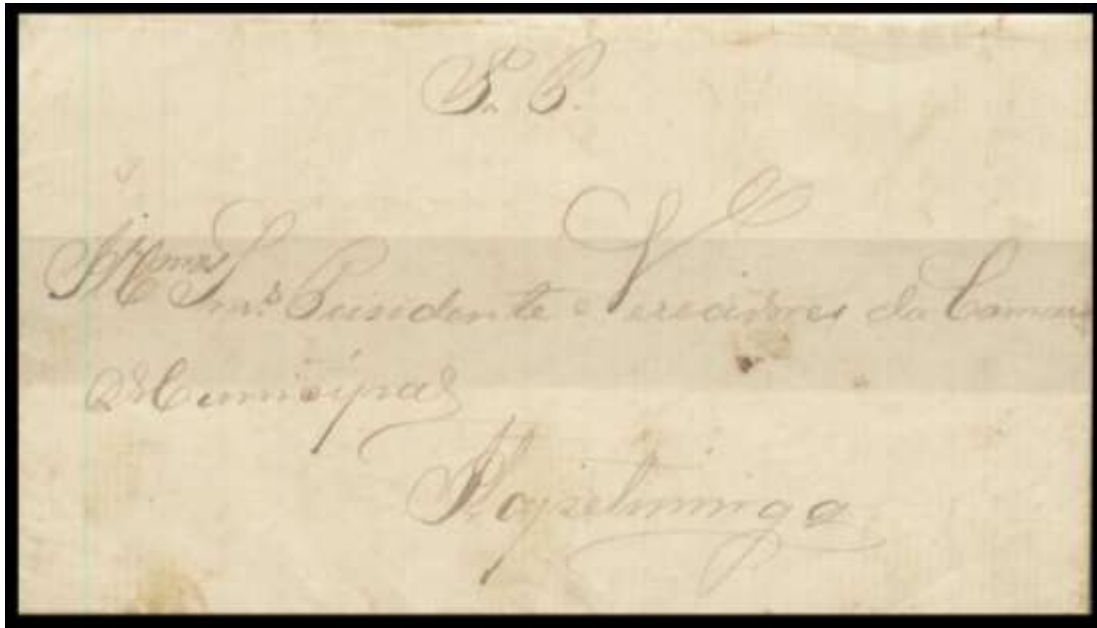 S. P.
Illmos Snrs Presidente e Vereadores da Camara
Municipal
Itapetininga